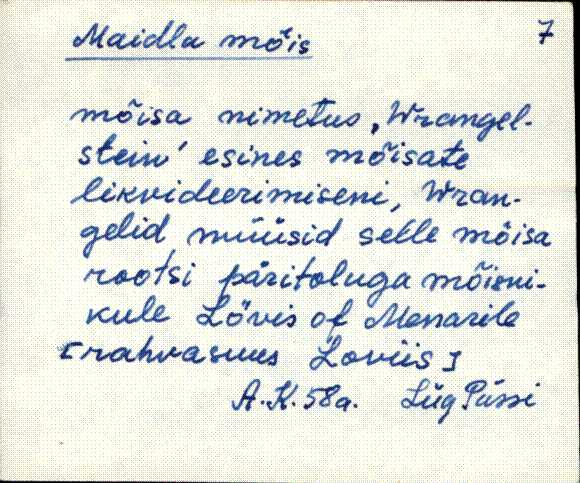 Maidla mõis
7
mõisa nimetus ‚Wrangel-
stein' esines mõisate
likvideerimiseni, Wran-
gelid müüsid selle mõisa
rootsi päritoluga mõisni-
kule Lövis of Menarile
[rahvasuus Loviis]
A.K. 58a. Lüg Püssi